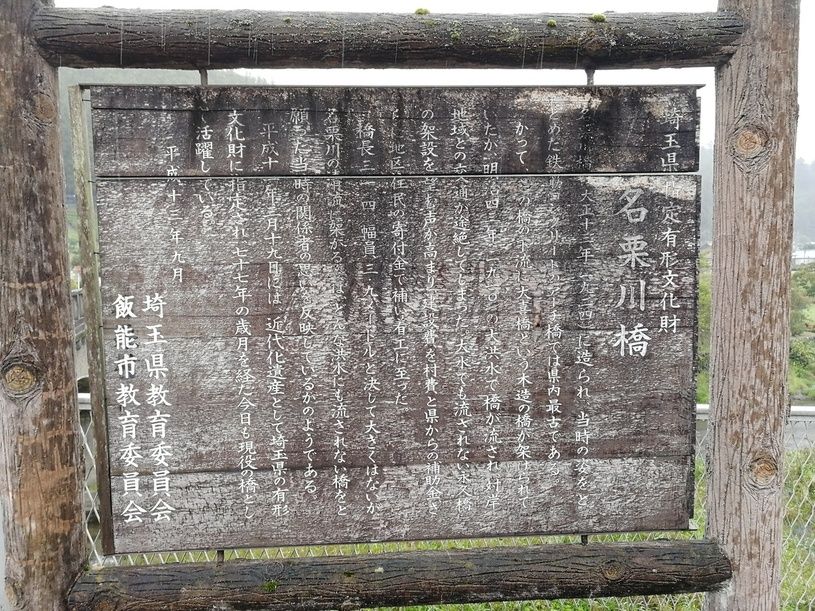 埼玉県指定有形文化財
名栗川橋
名栗川橋は、大正十三年(一九二四)に造られ、当時の姿をと
どめた鉄筋コンクリートアーチ橋では県内最古である。
かつて、この橋の下流に大喜橋という木造の橋が架けられて
いたが、明治四三年(一九一〇)の大洪水で橋が流され、対岸
地域との交通が途絶してしまった。大水でも流されない永久橋
の架設を望む声が高まり、建設費を村費と県からの補助金、さ
らに地区住民の寄付金で補い着工に至った。
橋長二一・四、幅員三・九メートルと決して大きくはないが、
名栗川の清流に架かる姿は、どんな洪水にも流されない橋をと
願った当時の関係者の思いを反映しているかのようである。
平成十 年三月十九日には、近代化遺産として埼玉県の有形
文化財に指定され、七十七年の歳月を経た今日も現役の橋とし
て活躍している。
平成十三年九月
埼玉県教育委員会
飯能市教育委員会